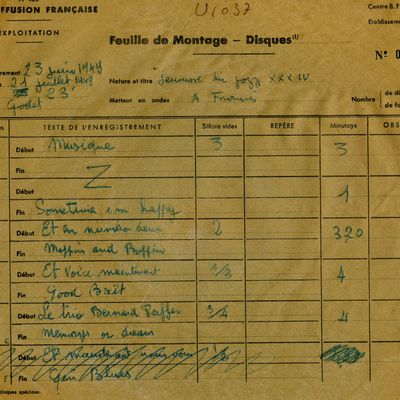 FFUSION FRANÇAISE
U1037
Centre B. F
EXPLOITATION
Etablisseme
Feuille de Montage – Disques(1)
Nº 0
rement 23 juin 1949
21 juillet 1949
23
Godet
Nature et titre Jeunesse du jazz XXXIV
Metteur en ondes A
Nombre
de di
de fa
es
TEXTE DE L'ENREGISTREMENT
Sillons vides
REPÈRE
Minutage
OBS
Début Musique 3 3
Fin
Début Z
1
Fin Sometime i'm happy
Début Et en numéro deux 2 320
Fin Moppin and Boppin
Début Et Voice maintenant 1/3 4
Fin Good Baït
Début Le trio Bernard Peiffer 3/4 4
Fin Memorys or dream
Début Et maintenant nous 1/3
Fin Blues
disques spéciaux.